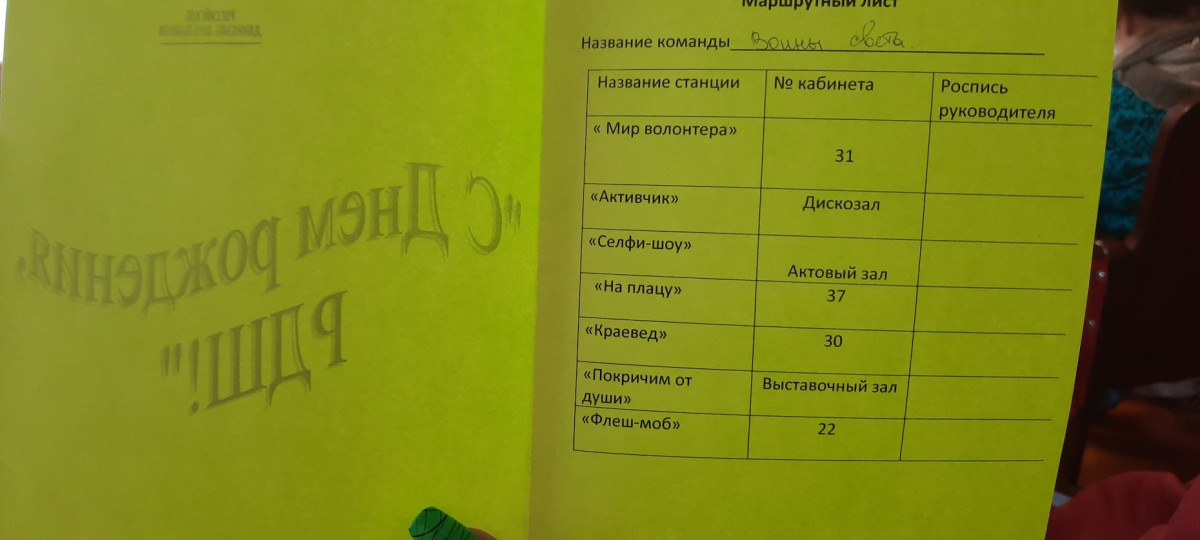 РОССИЙСКОЕ
ДВИЖЕНИЕ ШКОЛЬНИКОВ
"С Днем рождения,
РДШ!"
Маршрутный лист
Название команды Воины света.
Название станции № кабинета Роспись руководителя
« Мир волонтера» 31
«Активчик» Дискозал
«Селфи-шоу» Актовый зал
«На плацу» 37
«Краевед» 30
«Покричим от души» Выставочный зал
«Флеш-моб» 22